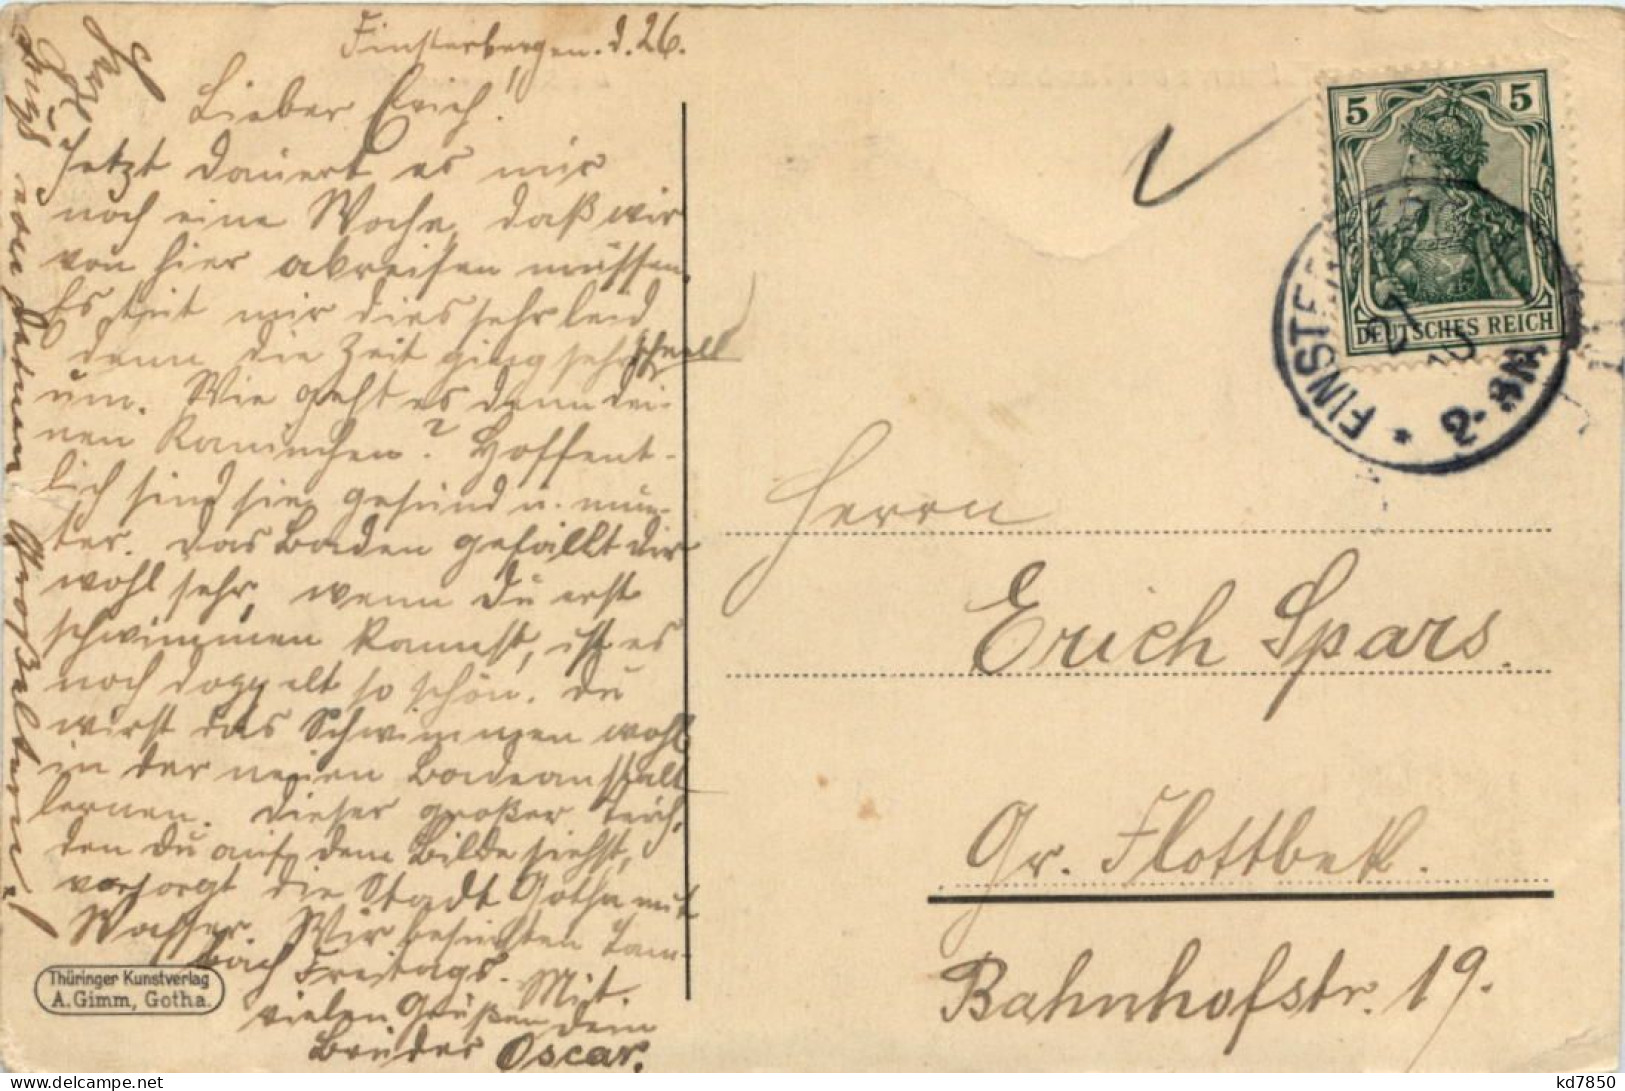 Finsterbergen. d. 26.
Lieber Erich!
Jetzt dauert es mir
noch eine Woche, daß wir
von hier abreisen müssen.
Es tut mir dies sehr leid
denn die Zeit ging sehr schnell
um. Wie geht es denn dei-
nen Kaninchen? Hoffent-
lich sind sie gesund u. mun-
ter. Das Baden gefällt dir
wohl sehr, wenn du erst
schwimmen kannst, ist es
noch doppelt so schön. Du
wirst das Schwimmen wohl
in der neuen Badeanstalt
lernen. Dieser großer Teich,
den du auf dem Bilde siehst,
versorgt die Stadt Gotha mit
Wasser. Wir besuchten Tam-
bach Freitags. Mit
vielen Grüßen dein
Bruder Oscar.
von deinen Großeltern!
Thüringer Kunstverlag
A. Gimm, Gotha.
5 5
DEUTSCHES REICH
FINSTE
27
10
* 2-3N
Herrn
Erich Spars.
Gr. Flottbek.
Bahnhofstr. 19.
kd7850